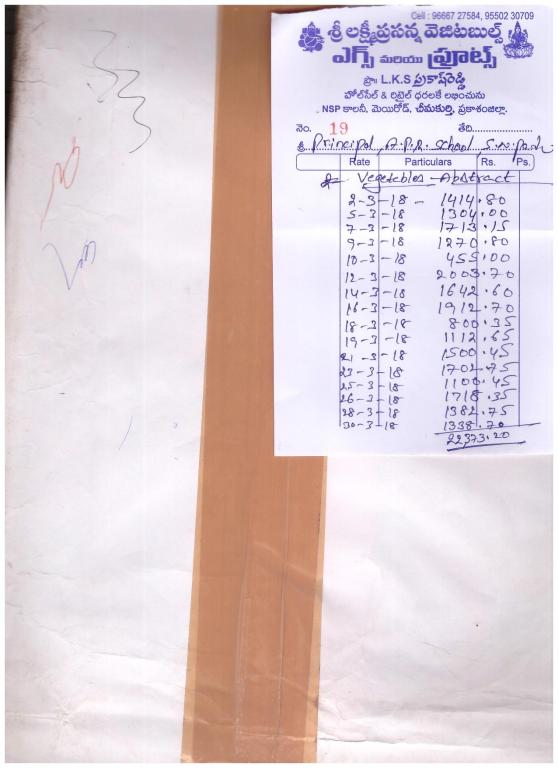 Cell : 96667 27584, 95502 30709
శ్రీ లక్ష్మీప్రసన్న వెజిటబుల్స్
ఎగ్స్ మరియు ఫ్రూట్స్
ప్రొ॥ L.K.S ప్రకాష్‌రెడ్డి
హోల్‌సేల్ & రిటైల్ ధరలకే లభించును
NSP కాలనీ, మెయిన్‌రోడ్, చీమకుర్తి, ప్రకాశంజిల్లా.
నెం. 19 తేది..................
శ్రీ Principal A.P.R. School
Rate Particulars Rs. Ps.
Vegetables - Abstract
2-3-18 - 1414.80
5-3-18 1304.00
7-3-18 1713.15
9-3-18 1270.80
10-3-18 455.00
12-3-18 2003.70
14-3-18 1642.60
16-3-18 1912.70
18-3-18 800.35
19-3-18 1112.65
21-3-18 1500.45
23-3-18 1702.75
25-3-18 1100.45
26-3-18 1718.35
28-3-18 1382.75
30-3-18 1338.70
22373.20